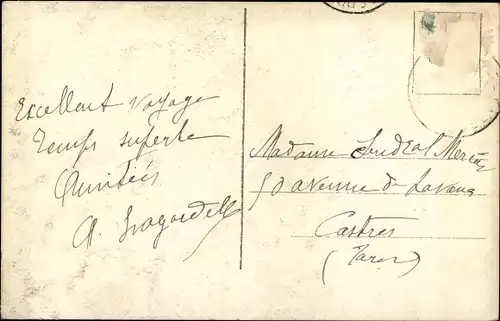 Excellent voyage
Temps superbe
Amitiés
Madame
50 avenue de Lavaur
Castres
(Tarn)